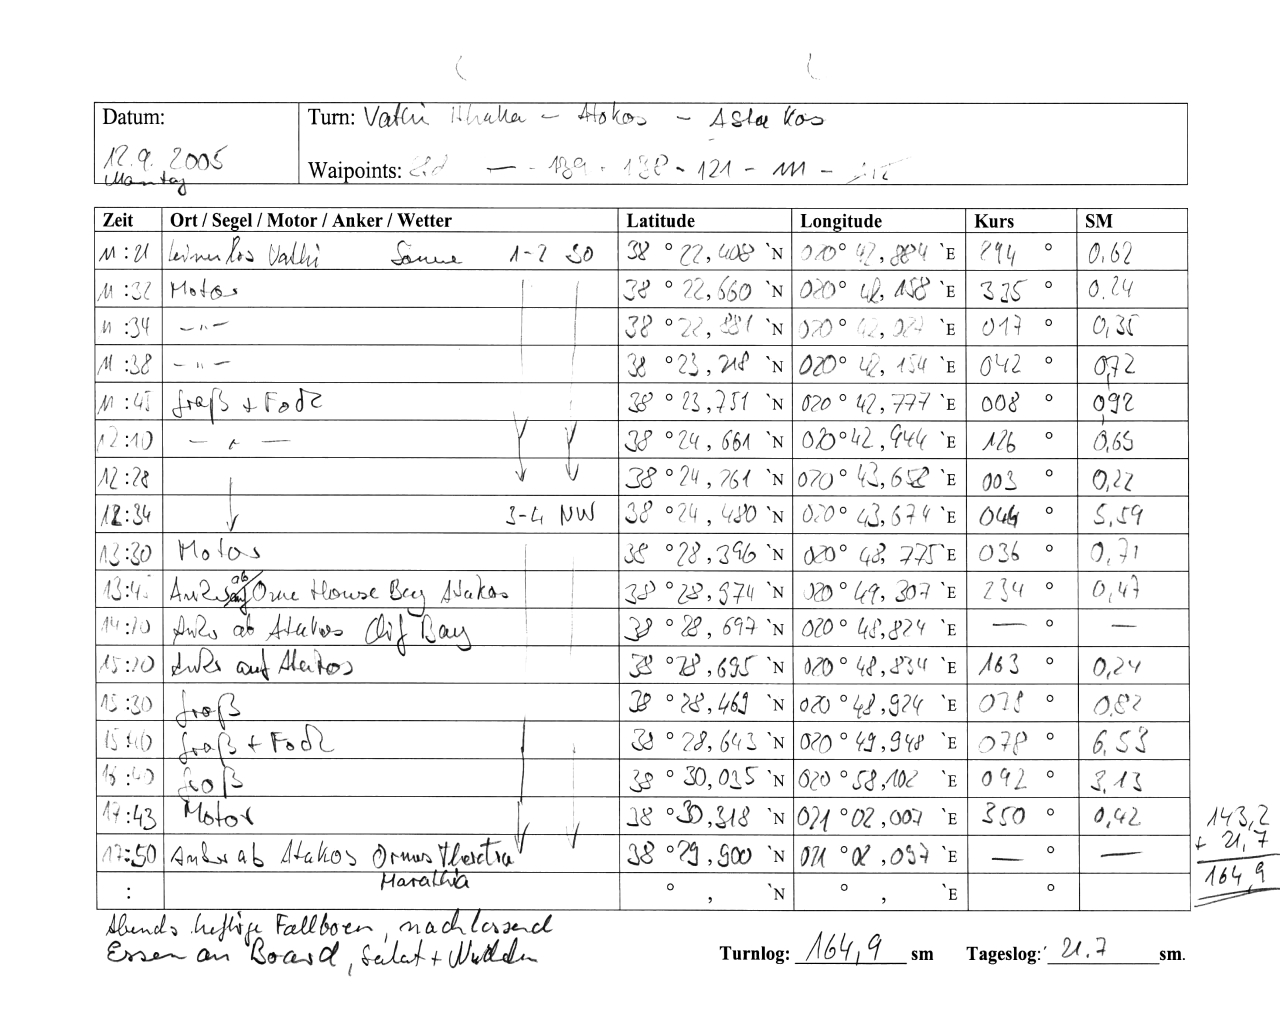 Datum: Turn: Vathi Ithaka – Atokos – Astakos
12.9. 2005
Montag Waipoints: — - 189 - 188 - 121 - 111 -
Zeit Ort / Segel / Motor / Anker / Wetter Latitude Longitude Kurs SM
11:21 Leinen los Vathi Sonne 1-2 SO 38 ° 22,408 'N 020° 42,884 'E 294 ° 0,62
11:32 Motor 38 ° 22,660 'N 020° 42,158 'E 335 ° 0,24
11:34 – " – 38 ° 22,881 'N 020° 42,027 'E 017 ° 0,35
11:38 – " – 38 ° 23,218 'N 020° 42,154 'E 042 ° 0,72
11:45 Groß + Fock 38 ° 23,751 'N 020° 42,777 'E 008 ° 0,92
12:10 – " — 38 ° 24,661 'N 020° 42,944 'E 126 ° 0,65
12:28 38 ° 24,261 'N 020° 43,652 'E 003 ° 0,22
12:34 3-4 NW 38 ° 24,480 'N 020° 43,674 'E 044 ° 5,59
13:30 Motor 38 ° 28,396 'N 020° 48,775 'E 036 ° 0,71
13:45 Anker ab One House Bay Atokos 38 ° 28,974 'N 020° 49,307 'E 234 ° 0,47
14:20 Anker ab Atokos Clif Bay 38 ° 28,697 'N 020° 48,824 'E — ° —
15:20 Anker auf Atokos 38 ° 28,695 'N 020° 48,834 'E 163 ° 0,24
15:30 Groß 38 ° 28,469 'N 020° 48,924 'E 078 ° 0,82
15:40 Groß + Fock 38 ° 28,643 'N 020° 49,948 'E 078 ° 6,53
16:40 Groß 38 ° 30,035 'N 020° 58,102 'E 092 ° 3,13
17:43 Motor 38 ° 30,318 'N 021° 02,007 'E 350 ° 0,42
143,2
+ 21,7
17:50 Anker ab Atakos Ormos 38 ° 29,900 'N 021° 02,097 'E — ° —
164,9
: Marathia ° , 'N ° , 'E °
Abends heftige Fallböen, nachlassend
Essen an Board, Salat + Nudeln Turnlog: 164,9 sm Tageslog: 21.7 sm.